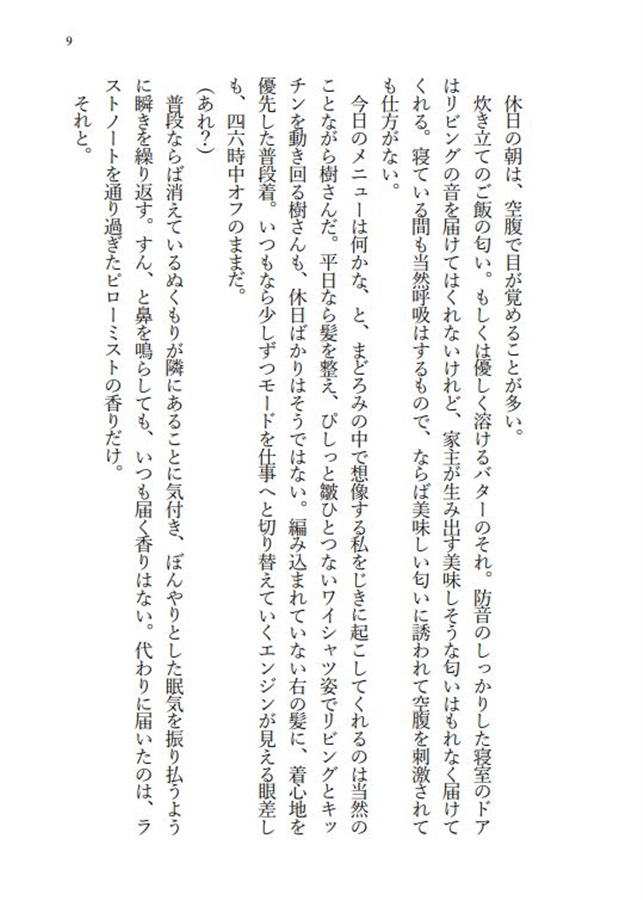 9
休日の朝は、空腹で目が覚めることが多い。
炊き立てのご飯の匂い。もしくは優しく溶けるバターのそれ。防音のしっかりした寝室のドア
はリビングの音を届けてはくれないけれど、家主が生み出す美味しそうな匂いはもれなく届けて
くれる。寝ている間も当然呼吸はするもので、ならば美味しい匂いに誘われて空腹を刺激されて
も仕方がない。
今日のメニューは何かな、と、まどろみの中で想像する私をじきに起こしてくれるのは当然の
ことながら樹さんだ。平日なら髪を整え、ぴしっと皺ひとつないワイシャツ姿でリビングとキッ
チンを動き回る樹さんも、休日ばかりはそうではない。編み込まれていない右の髪に、着心地を
優先した普段着。いつもなら少しずつモードを仕事へと切り替えていくエンジンが見える眼差し
も、四六時中オフのままだ。
(あれ?)
普段ならば消えているぬくもりが隣にあることに気付き、ぼんやりとした眠気を振り払うよう
に瞬きを繰り返す。すん、と鼻を鳴らしても、いつも届く香りはない。代わりに届いたのは、ラ
ストノートを通り過ぎたピローミストの香りだけ。
それと。